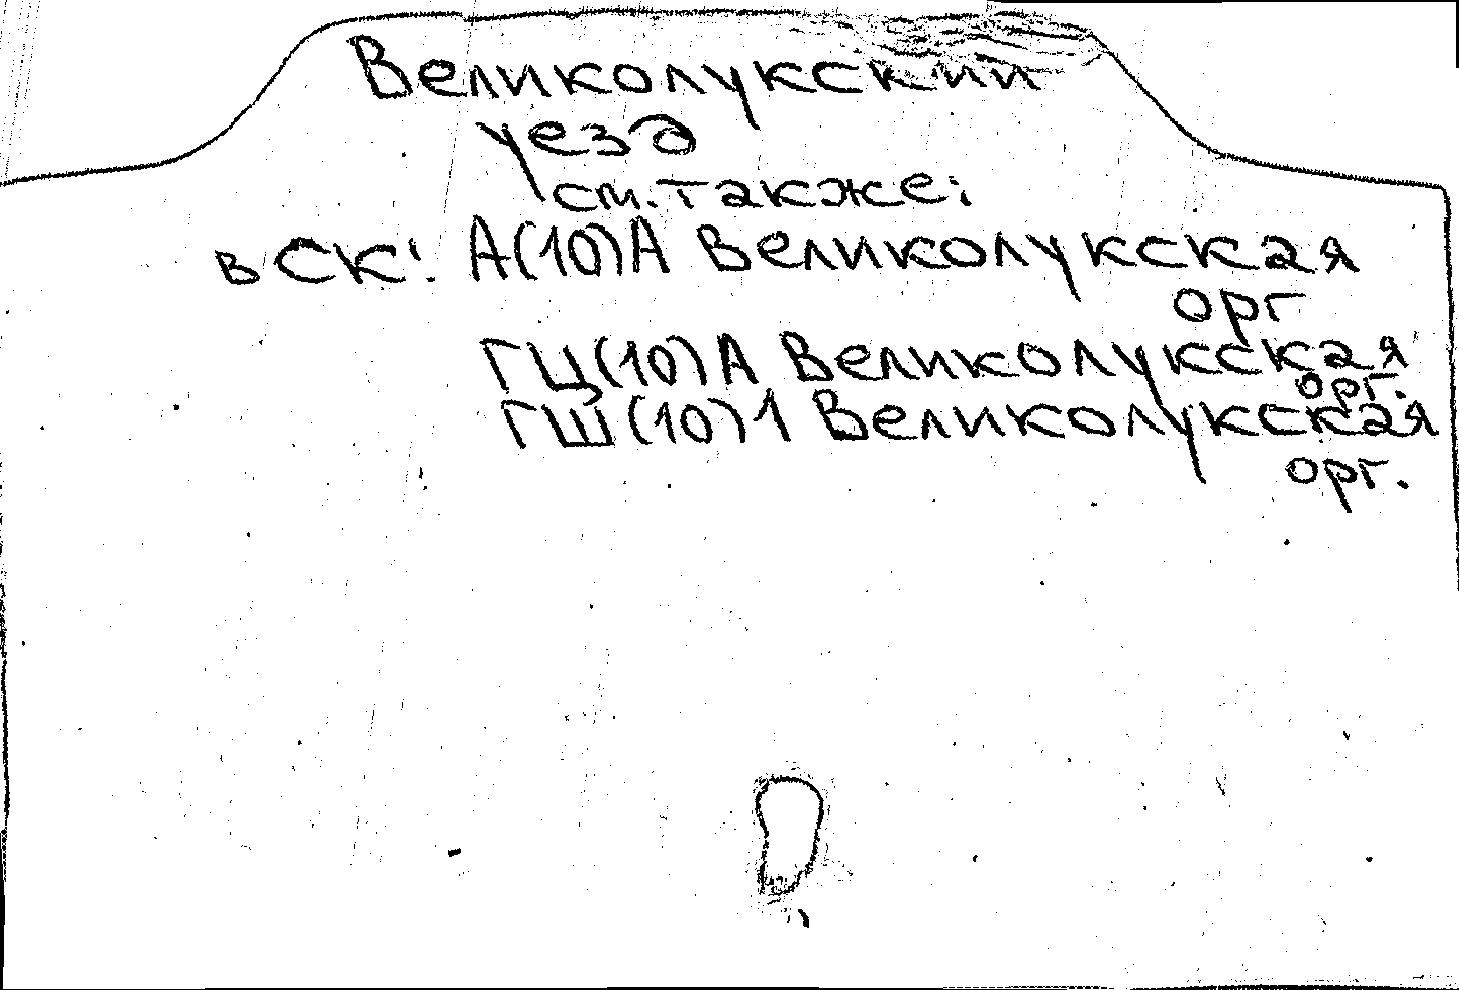 Великолукский
уезд
см. также:
в СК: А(10)А Великолукская
орг
ГЦ(10)А Великолукская
орг.
ГШ(10)1 Великолукская
орг.